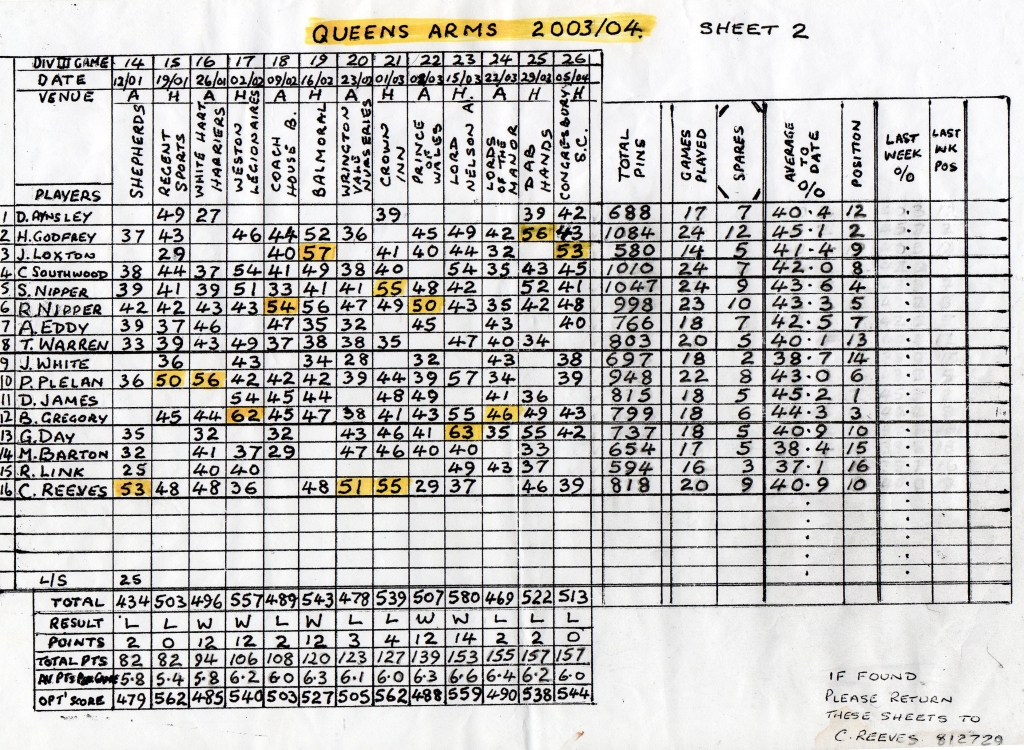 QUEENS ARMS 2003/04. SHEET 2
DIV III GAME 14 15 16 17 18 19 20 21 22 23 24 25 26
DATE 12/01 19/01 26/01 02/02 09/02 16/02 23/02 01/03 08/03 15/03 22/03 29/03 05/04
VENUE A H A H A H A H A H. A H H
PLAYERS SHEPHERDS REGENT SPORTS WHITE HART HARRIERS WESTON LEGIONAIRES COACH HOUSE B. BALMORAL WRINGTON VALE NURSERIES CROWN INN PRINCE OF WALES LORD NELSON A. LORDS OF THE MANOR DAB HANDS CONGRESBURY S.C. TOTAL PINS GAMES PLAYED (SPARES) AVERAGE TO DATE % POSITION LAST WEEK % LAST WK POS
1 D. AYNSLEY 49 27 39 39 42 688 17 7 40.4 12
2 H. GODFREY 37 43 46 44 52 36 45 49 42 56 43 1084 24 12 45.1 2
3 J. LOXTON 29 40 57 41 40 44 32 53 580 14 5 41.4 9
4 C SOUTHWOOD 38 44 37 54 41 49 38 40 54 35 43 45 1010 24 7 42.0 8
5 S. NIPPER 39 41 39 51 33 41 41 55 48 42 52 41 1047 24 9 43.6 4
6 R. NIPPER 42 42 43 43 54 56 47 49 50 43 35 42 48 998 23 10 43.3 5
7 A. EDDY 39 37 46 47 35 32 45 43 40 766 18 7 42.5 7
8 T. WARREN 33 39 43 49 37 38 38 35 47 40 34 803 20 5 40.1 13
9 J. WHITE 36 43 34 28 32 43 38 697 18 2 38.7 14
10 P. PLELAN 36 50 56 42 42 42 39 44 39 57 34 39 948 22 8 43.0 6
11 D. JAMES 54 45 44 48 49 41 36 815 18 5 45.2 1
12 B. GREGORY 45 44 62 45 47 38 41 43 55 46 49 43 799 18 6 44.3 3
13 G. DAY 35 32 32 43 46 41 63 35 55 42 737 18 5 40.9 10
14 M. BARTON 32 41 37 29 47 46 40 40 33 654 17 5 38.4 15
15 R. LINK 25 40 40 49 43 37 594 16 3 37.1 16
16 C. REEVES 53 48 48 36 48 51 55 29 37 46 39 818 20 9 40.9 10
L/S 25
TOTAL 434 503 496 557 489 543 478 539 507 580 469 522 513
RESULT L L W W L W L L W W L L L
POINTS 2 0 12 12 2 12 3 4 12 14 2 2 0
TOTAL PTS 82 82 94 106 108 120 123 127 139 153 155 157 157
AV. PTS PER GAME 5.8 5.4 5.8 6.2 6.0 6.3 6.1 6.0 6.3 6.6 6.4 6.2 6.0
OPT' SCORE 479 562 485 540 503 527 505 562 488 559 490 538 544
IF FOUND
PLEASE RETURN
THESE SHEETS TO
C. REEVES 812729